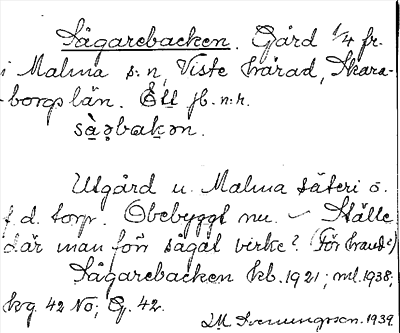 Sågarebacken. Gård 1/4 fr.
i Malma s:n, Viste härad, Skara-
borgs län. Ett jb.n:r.
sà̤ƍbakən.
Utgård u. Malma säteri o.
f.d. torp. Obebyggt nu. – Ställe
där man förr sågat virke? (För brand?)
Sågarebacken kb. 1921; ml. 1938;
kg. 42 No; G. 42.
1939